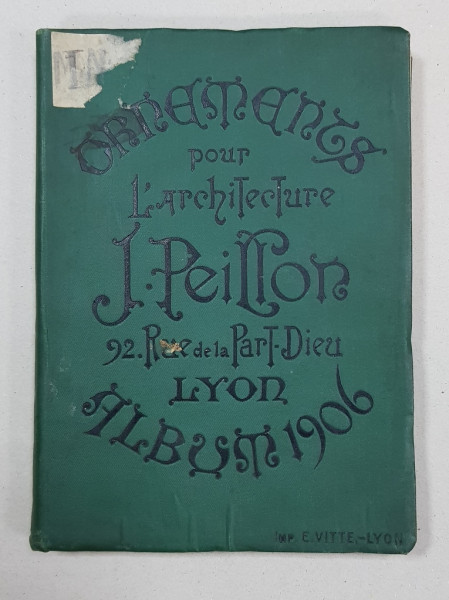 ORNEMENTS
pour
L'ARchiTecTure
J. Peillon
92. Rue de la Part-Dieu
LYON
ALBUM 1906
IMP. E. VITTE.-LYON